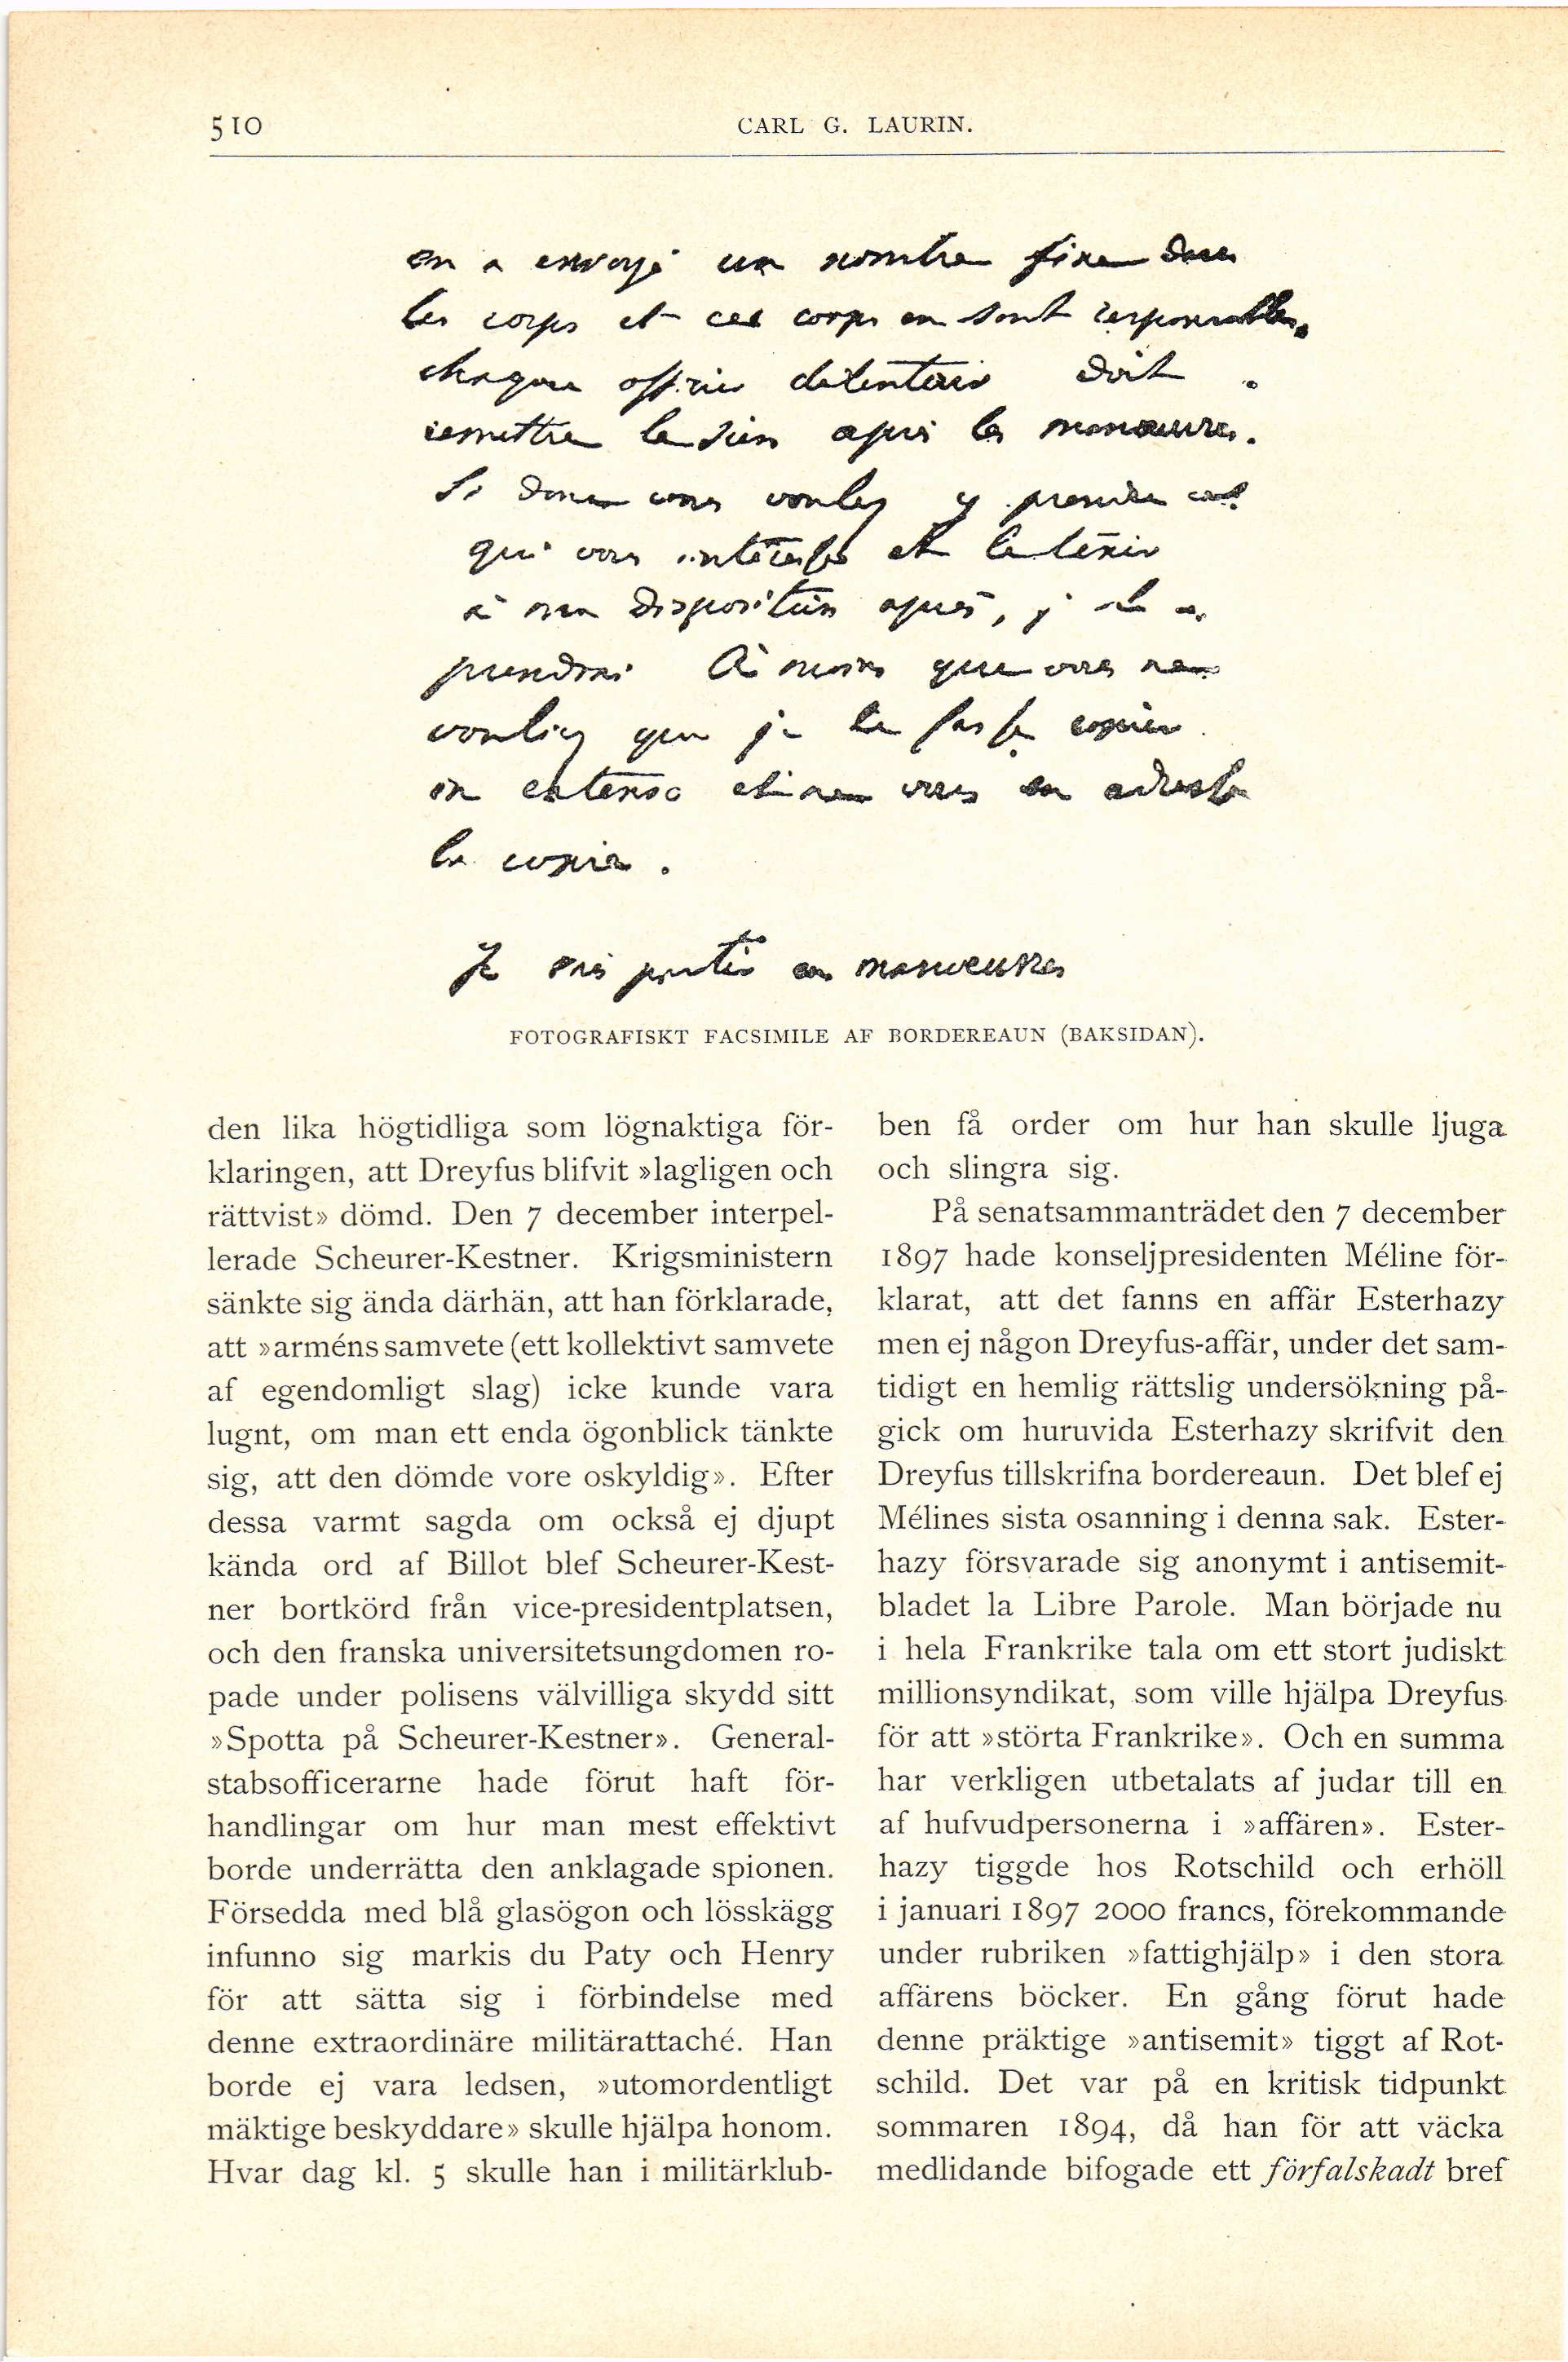 510
CARL G. LAURIN.
en a envoyé un nombre fixe dans
les corps et ces corps en sont responsables,
chaque officier détenteur doit
remettre le sien après les manœuvres.
Si donc vous voulez y prendre ce
qui vous intéresse et le tenir
à ma disposition après, je le
prendrai. À moins que vous ne
vouliez que je le fasse copier
in extenso et ne vous en adresse
la copie.
Je vais partir en manœuvres
FOTOGRAFISKT FACSIMILE AF BORDEREAUN (BAKSIDAN).
den lika högtidliga som lögnaktiga för-
klaringen, att Dreyfus blifvit »lagligen och
rättvist» dömd. Den 7 december interpel-
lerade Scheurer-Kestner. Krigsministern
sänkte sig ända därhän, att han förklarade,
att »arméns samvete (ett kollektivt samvete
af egendomligt slag) icke kunde vara
lugnt, om man ett enda ögonblick tänkte
sig, att den dömde vore oskyldig». Efter
dessa varmt sagda om också ej djupt
kända ord af Billot blef Scheurer-Kest-
ner bortkörd från vice-presidentplatsen,
och den franska universitetsungdomen ro-
pade under polisens välvilliga skydd sitt
»Spotta på Scheurer-Kestner». General-
stabsofficerarne hade förut haft för-
handlingar om hur man mest effektivt
borde underrätta den anklagade spionen.
Försedda med blå glasögon och lösskägg
infunno sig markis du Paty och Henry
för att sätta sig i förbindelse med
denne extraordinäre militärattaché. Han
borde ej vara ledsen, »utomordentligt
mäktige beskyddare» skulle hjälpa honom.
Hvar dag kl. 5 skulle han i militärklub-
ben få order om hur han skulle ljuga
och slingra sig.
På senatsammanträdet den 7 december
1897 hade konseljpresidenten Méline för-
klarat, att det fanns en affär Esterhazy
men ej någon Dreyfus-affär, under det sam-
tidigt en hemlig rättslig undersökning på-
gick om huruvida Esterhazy skrifvit den
Dreyfus tillskrifna bordereaun. Det blef ej
Mélines sista osanning i denna sak. Ester-
hazy försvarade sig anonymt i antisemit-
bladet la Libre Parole. Man började nu
i hela Frankrike tala om ett stort judiskt
millionsyndikat, som ville hjälpa Dreyfus
för att »störta Frankrike». Och en summa
har verkligen utbetalats af judar till en
af hufvudpersonerna i »affären». Ester-
hazy tiggde hos Rotschild och erhöll
i januari 1897 2000 francs, förekommande
under rubriken »fattighjälp» i den stora
affärens böcker. En gång förut hade
denne präktige »antisemit» tiggt af Rot-
schild. Det var på en kritisk tidpunkt
sommaren 1894, då han för att väcka
medlidande bifogade ett förfalskadt bref